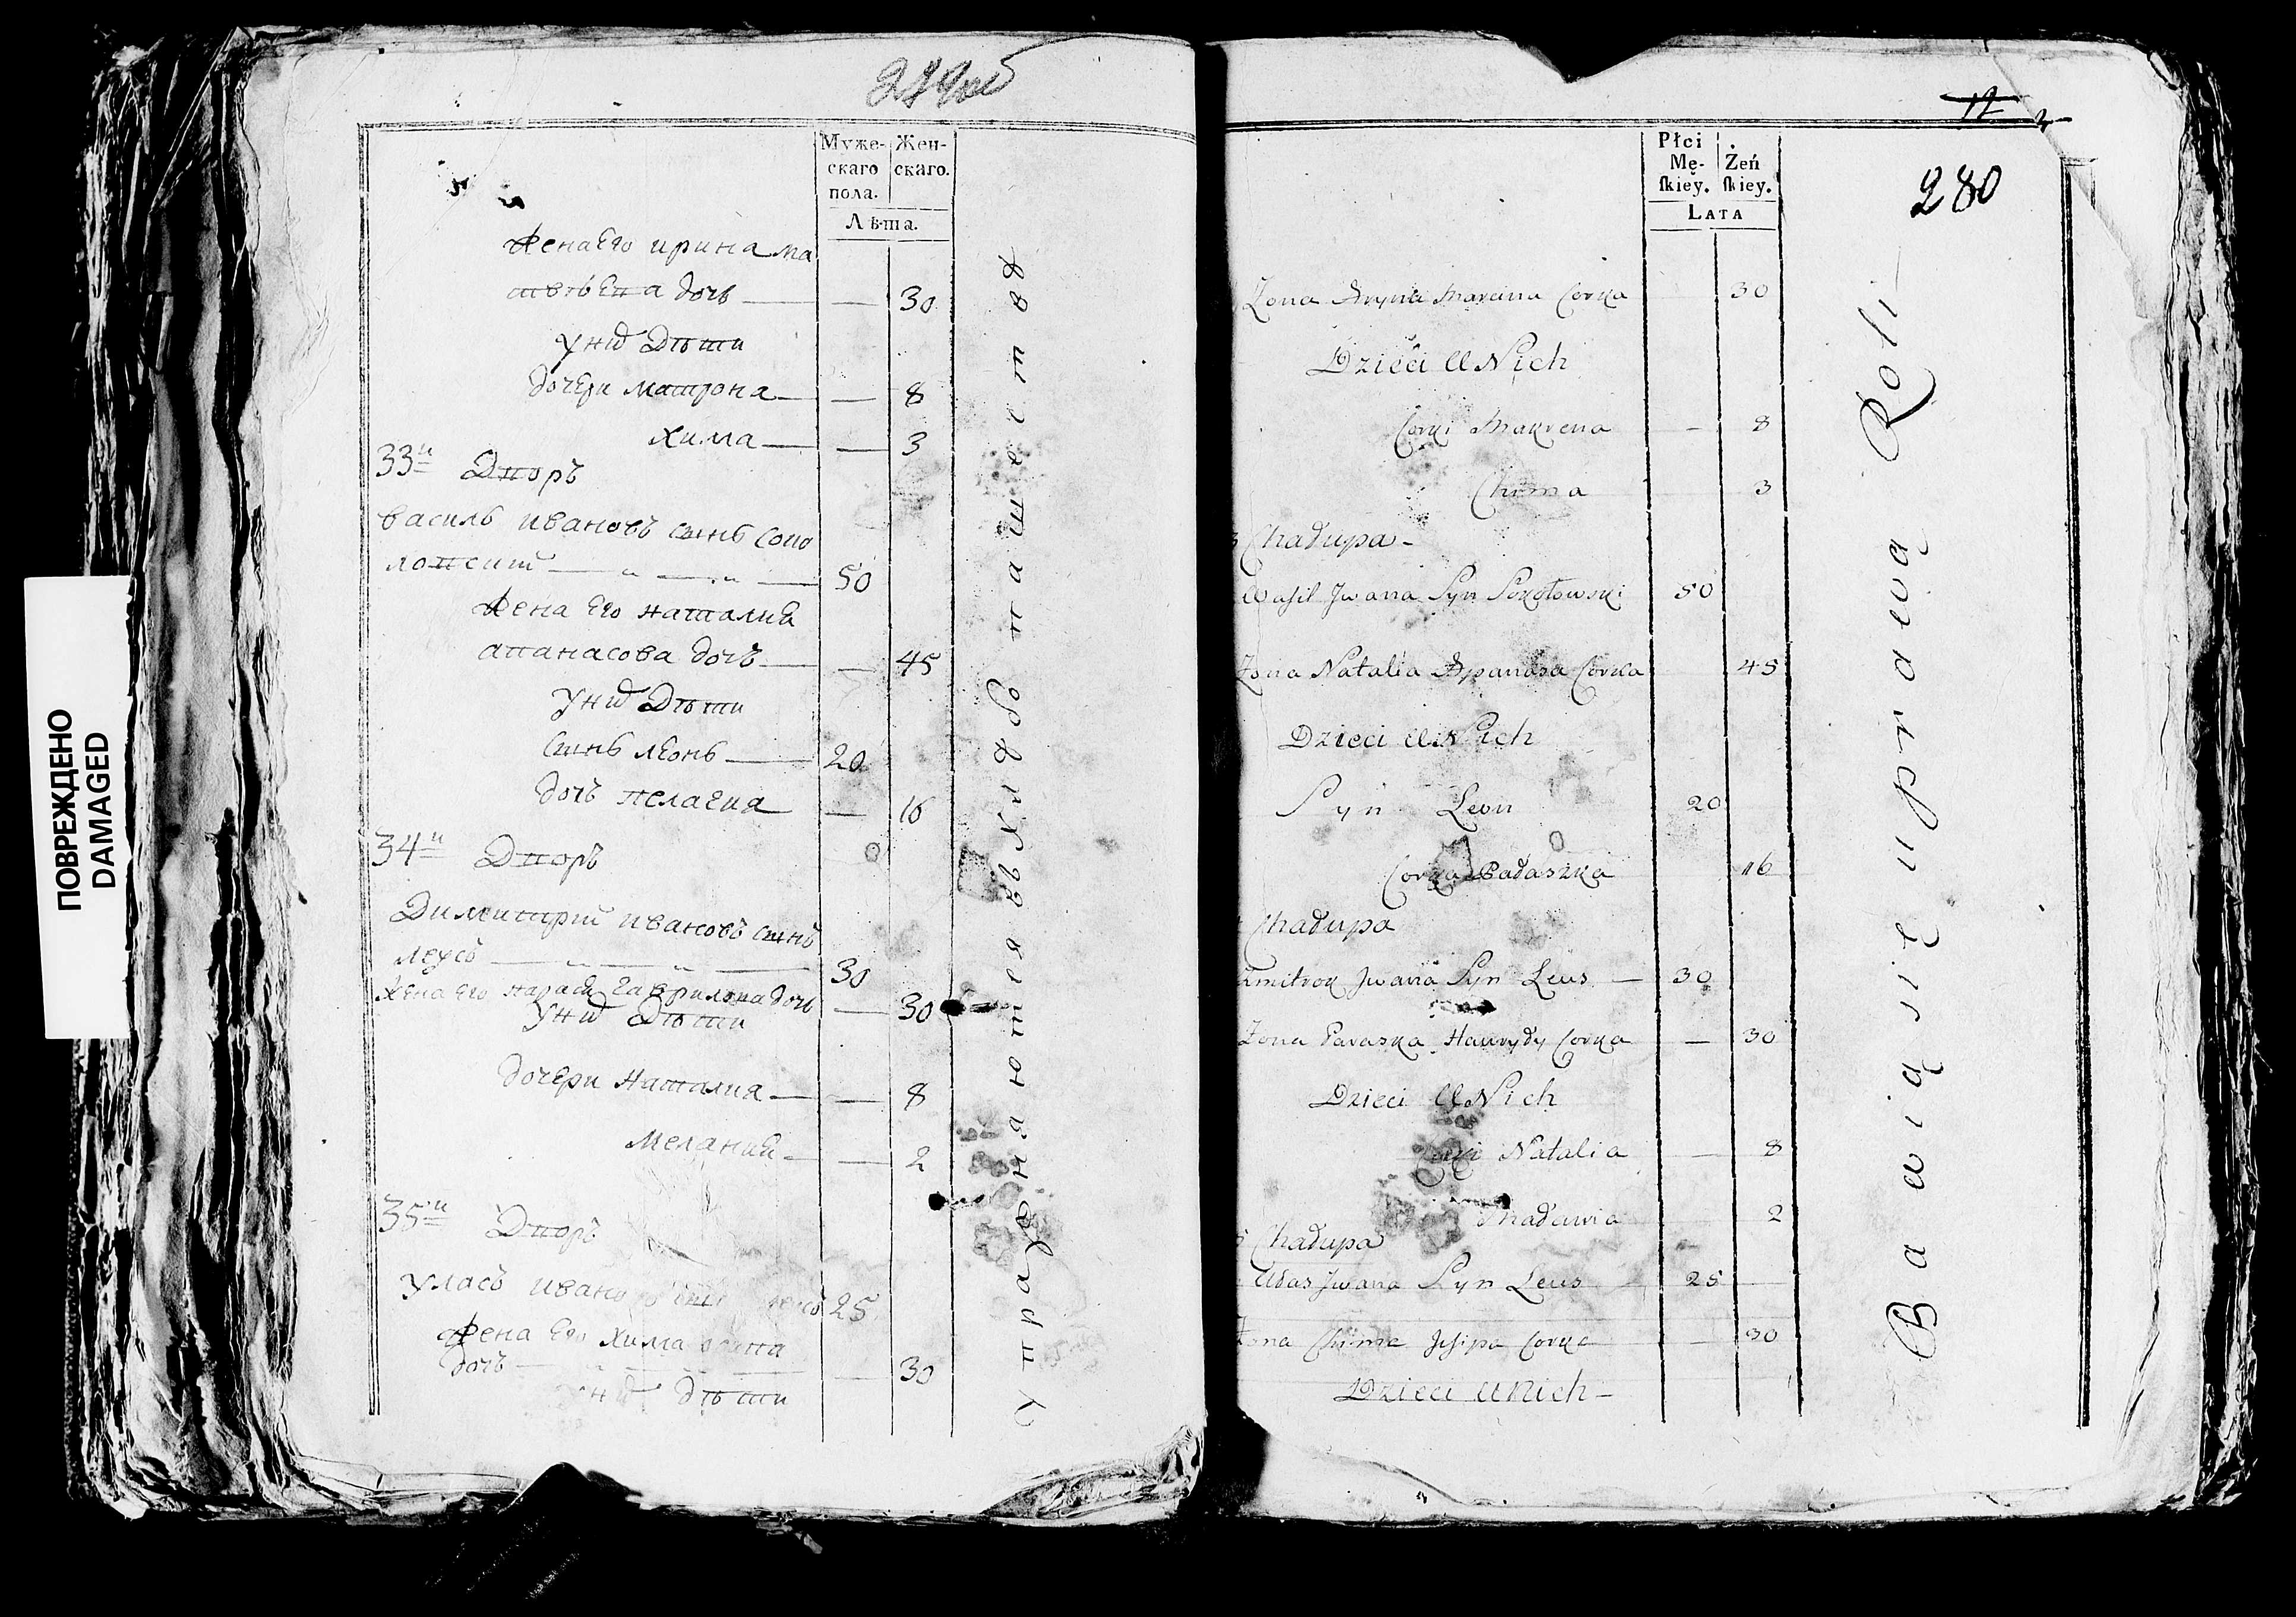 Муже-
скаго
пола.
Жен-
скаго.
Лѣта.
жена его ирина ма
твѣева дочь — — 30
У них Дѣти
дочери матрона — — 8
хима — — 3
33й Дворъ
василь ивановъ сынъ Соко
ловскій — 50
жена его наталия
апанасова дочъ — — 45
У них Дѣти
сынъ леонъ — 20
дочъ пелагия — 16
34й Дворъ
Димитрій ивановъ сынъ
леусъ — 30
жена его гаврилова дочь — 30
У них Дѣти
дочери наталия — — 8
мелания — — 2
35й Дворъ
уласъ 25
жена его хима
дочъ — 30
дѣти
упражняются въ хлѣбопашествѣ
ПОВРЕЖДЕНО
DAMAGED
12
280
Płci
Mę-
ſkiey.
Żeń
ſkiey.
LATA
Zona Aryna Marcina Corka 30
Dzieci U Nich
Corki Makrena — 8
Chima 3
Chałupa -
Wasil Jwana Syn Sokołowski 50
Zona Natalia Apanasa Corka 45
Dzieci U Nich
Syn Leon 20
Corka Pałaszka 16
Chałupa
Zmitrok Jwana Syn Leus — 30
Zona Paraska Hauryły Corka — 30
Dzieci U Nich
Corki Natalia — 8
Małania 2
Chałupa
Ułas Jwana Syn Leus 25
Zona Chima Jesipa Corka — 30
Dzieci U Nich -
Bawią się uprawą Roli